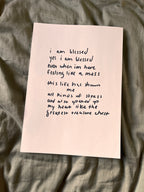 i am blessed
yet i am blessed
even when im here
feeling like a mess
this life has thrown
me
all kinds of stress
and also opened up
my heart like the
greatest treasure chest